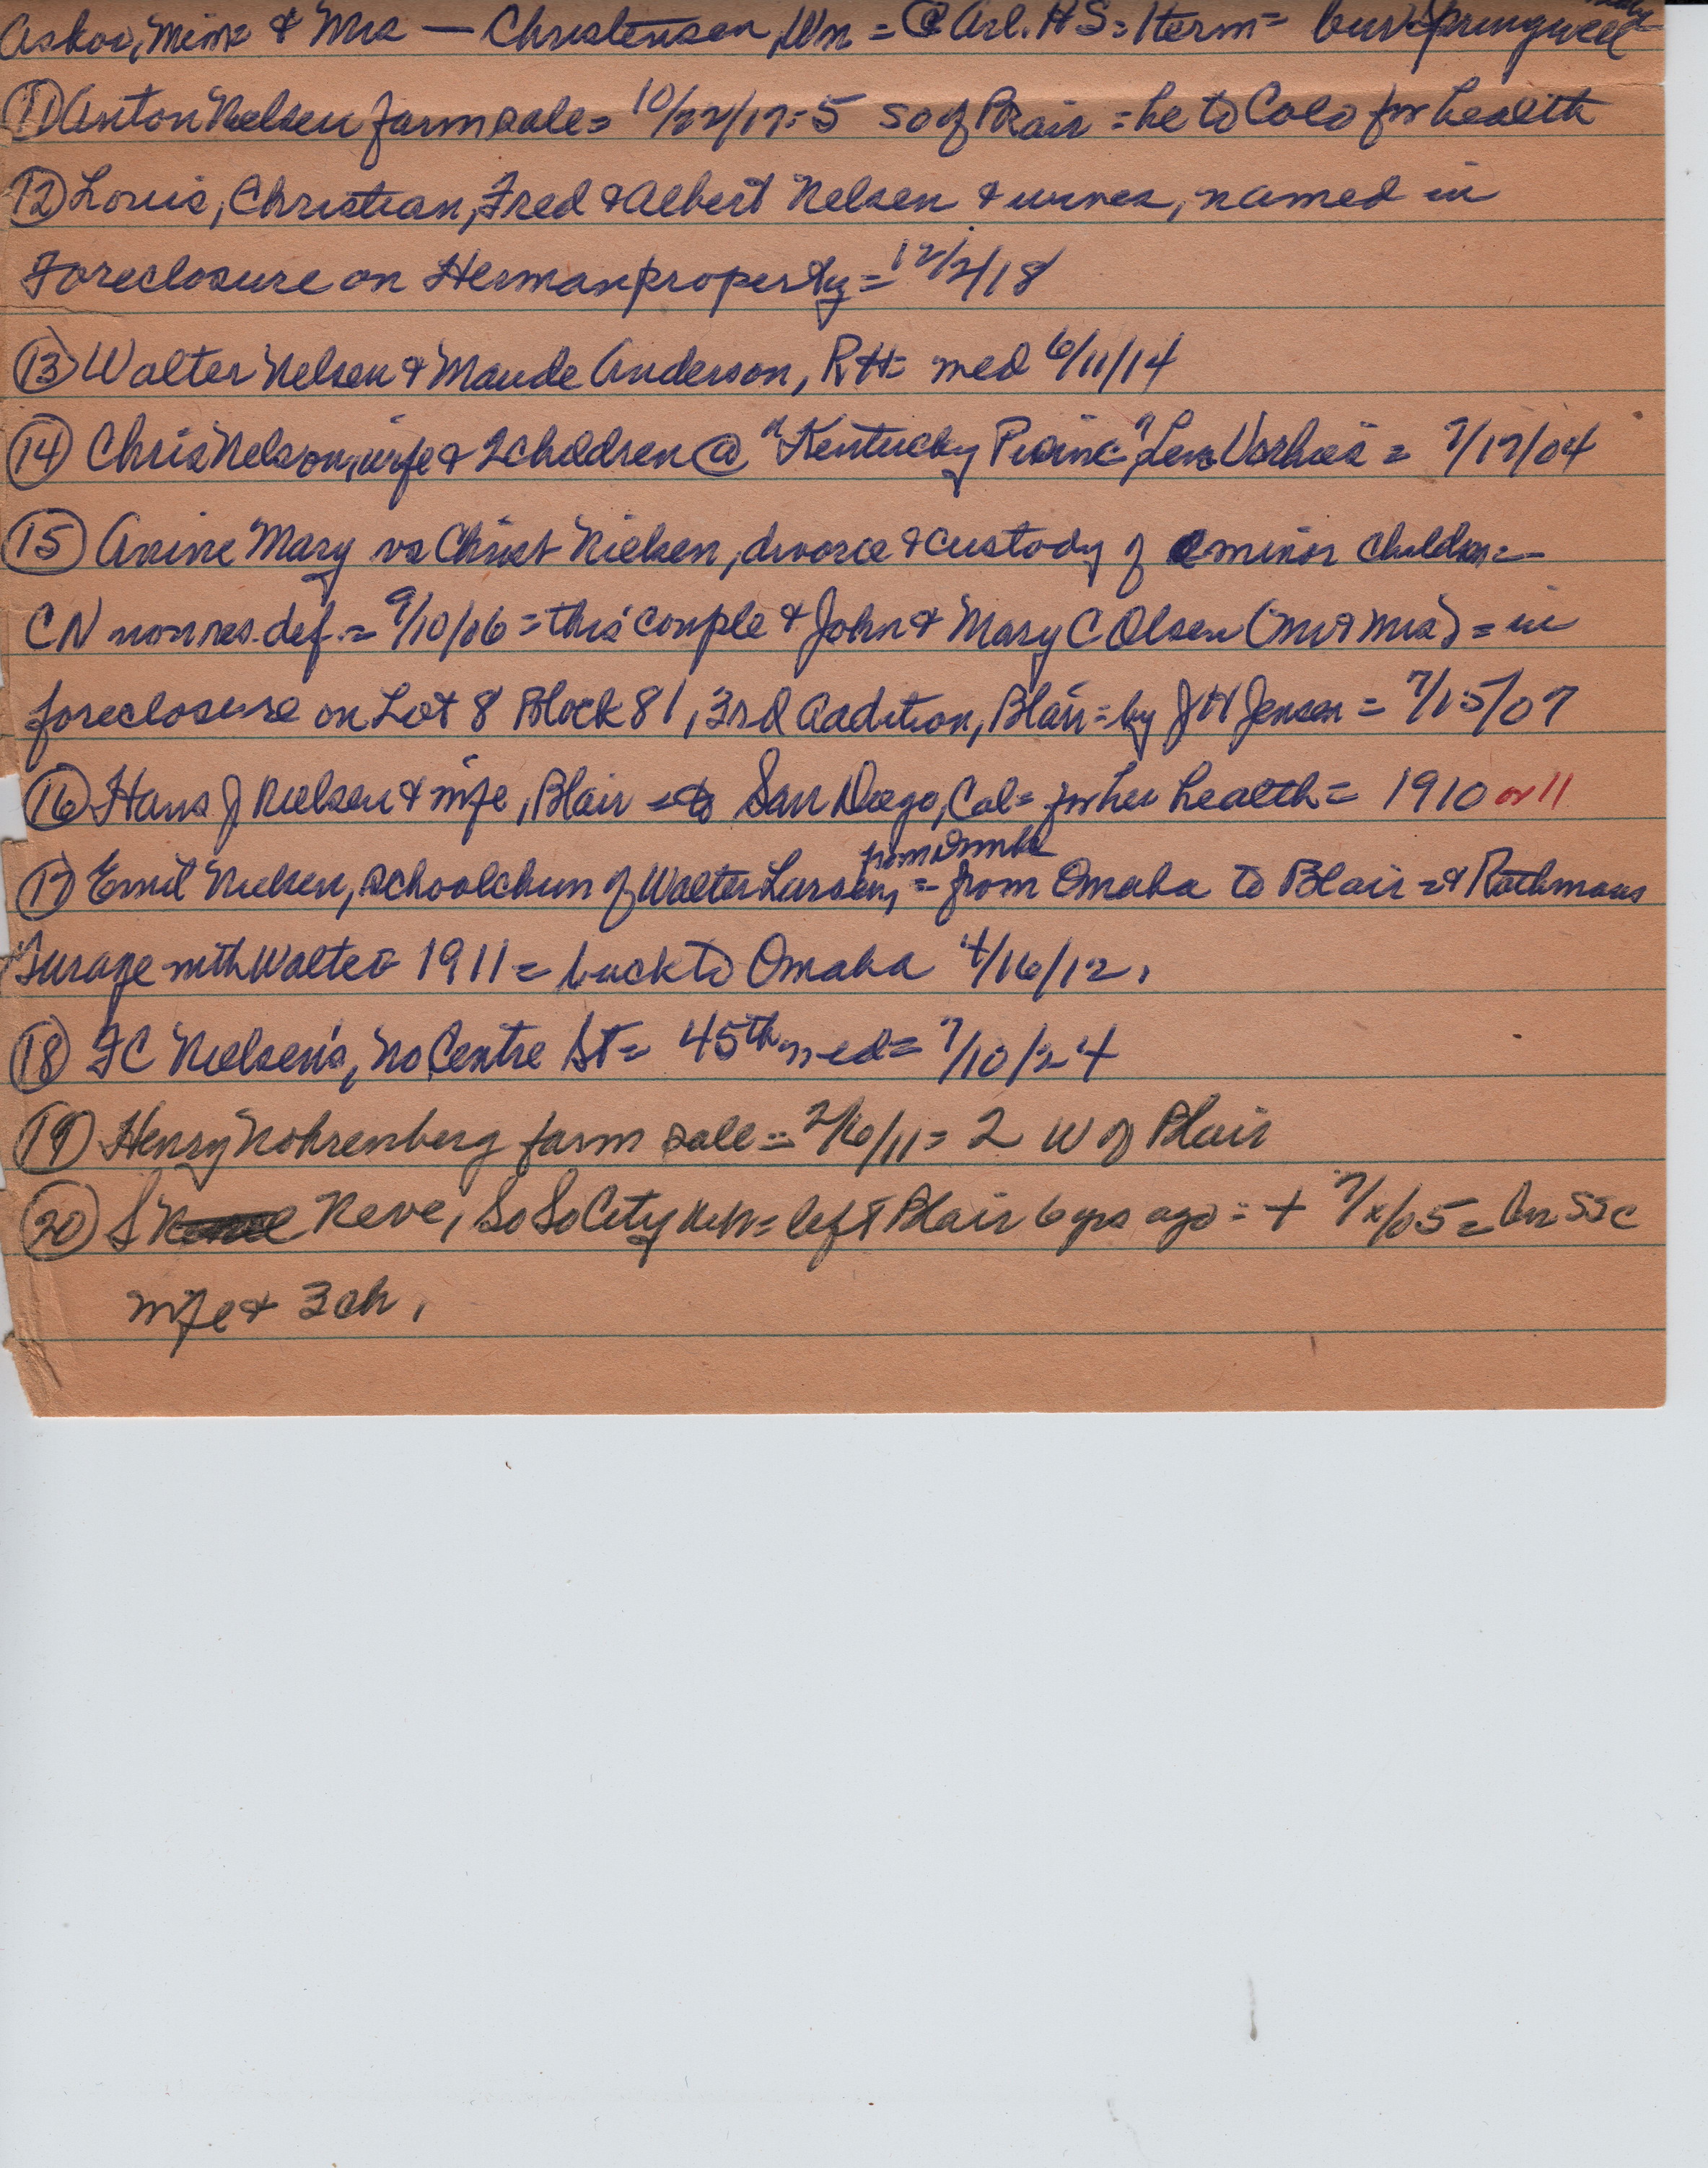 Askov, Minn & Mrs — Christensen, Wm = @ Arl. HS = 1 term = bur Springwell
(11) Anton Nielsen farm sale = 10/22/17 = 5 so of Blair = he to Colo for health
(12) Louis, Christian, Fred & Albert Nelsen & wives, named in
Foreclosure on Herman property = 12/2/18
(13) Walter Nelsen & Maude Anderson, RH = med 6/11/14
(14) Chris Nelson, wife & 2 children @ "Kentucky Picinc", Len Vorhies = 7/17/04
(15) Anine Mary vs Christ Nielsen, divorce & custody of minor children =
CN nonres. def. = 9/10/06 = this couple & John & Mary C Olsen (mr & mrs) = in
foreclosure on Lot 8 Block 81, 3rd Aadition, Blair = by J H Jensen = 7/15/07
(16) Hans J Nielsen & wife, Blair = to San Diego, Cal = for her health = 1910 or 11
(17) Emil Nielsen, schoolchum of Walter Larsen, = from Omaha to Blair = & Rathmans
from Dmk
Garage with Walter 1911 = back to Omaha 4/16/12.
(18) FC Nielsen's, No Centre St = 45th med = 7/10/24
(19) Henry Nohrenberg farm sale = 2/6/11 = 2 W of Blair
(20) S Neve, So So City Neb = left Blair 6 yrs ago = + 7/x/05 = bur SSC
wife & 3 ch.